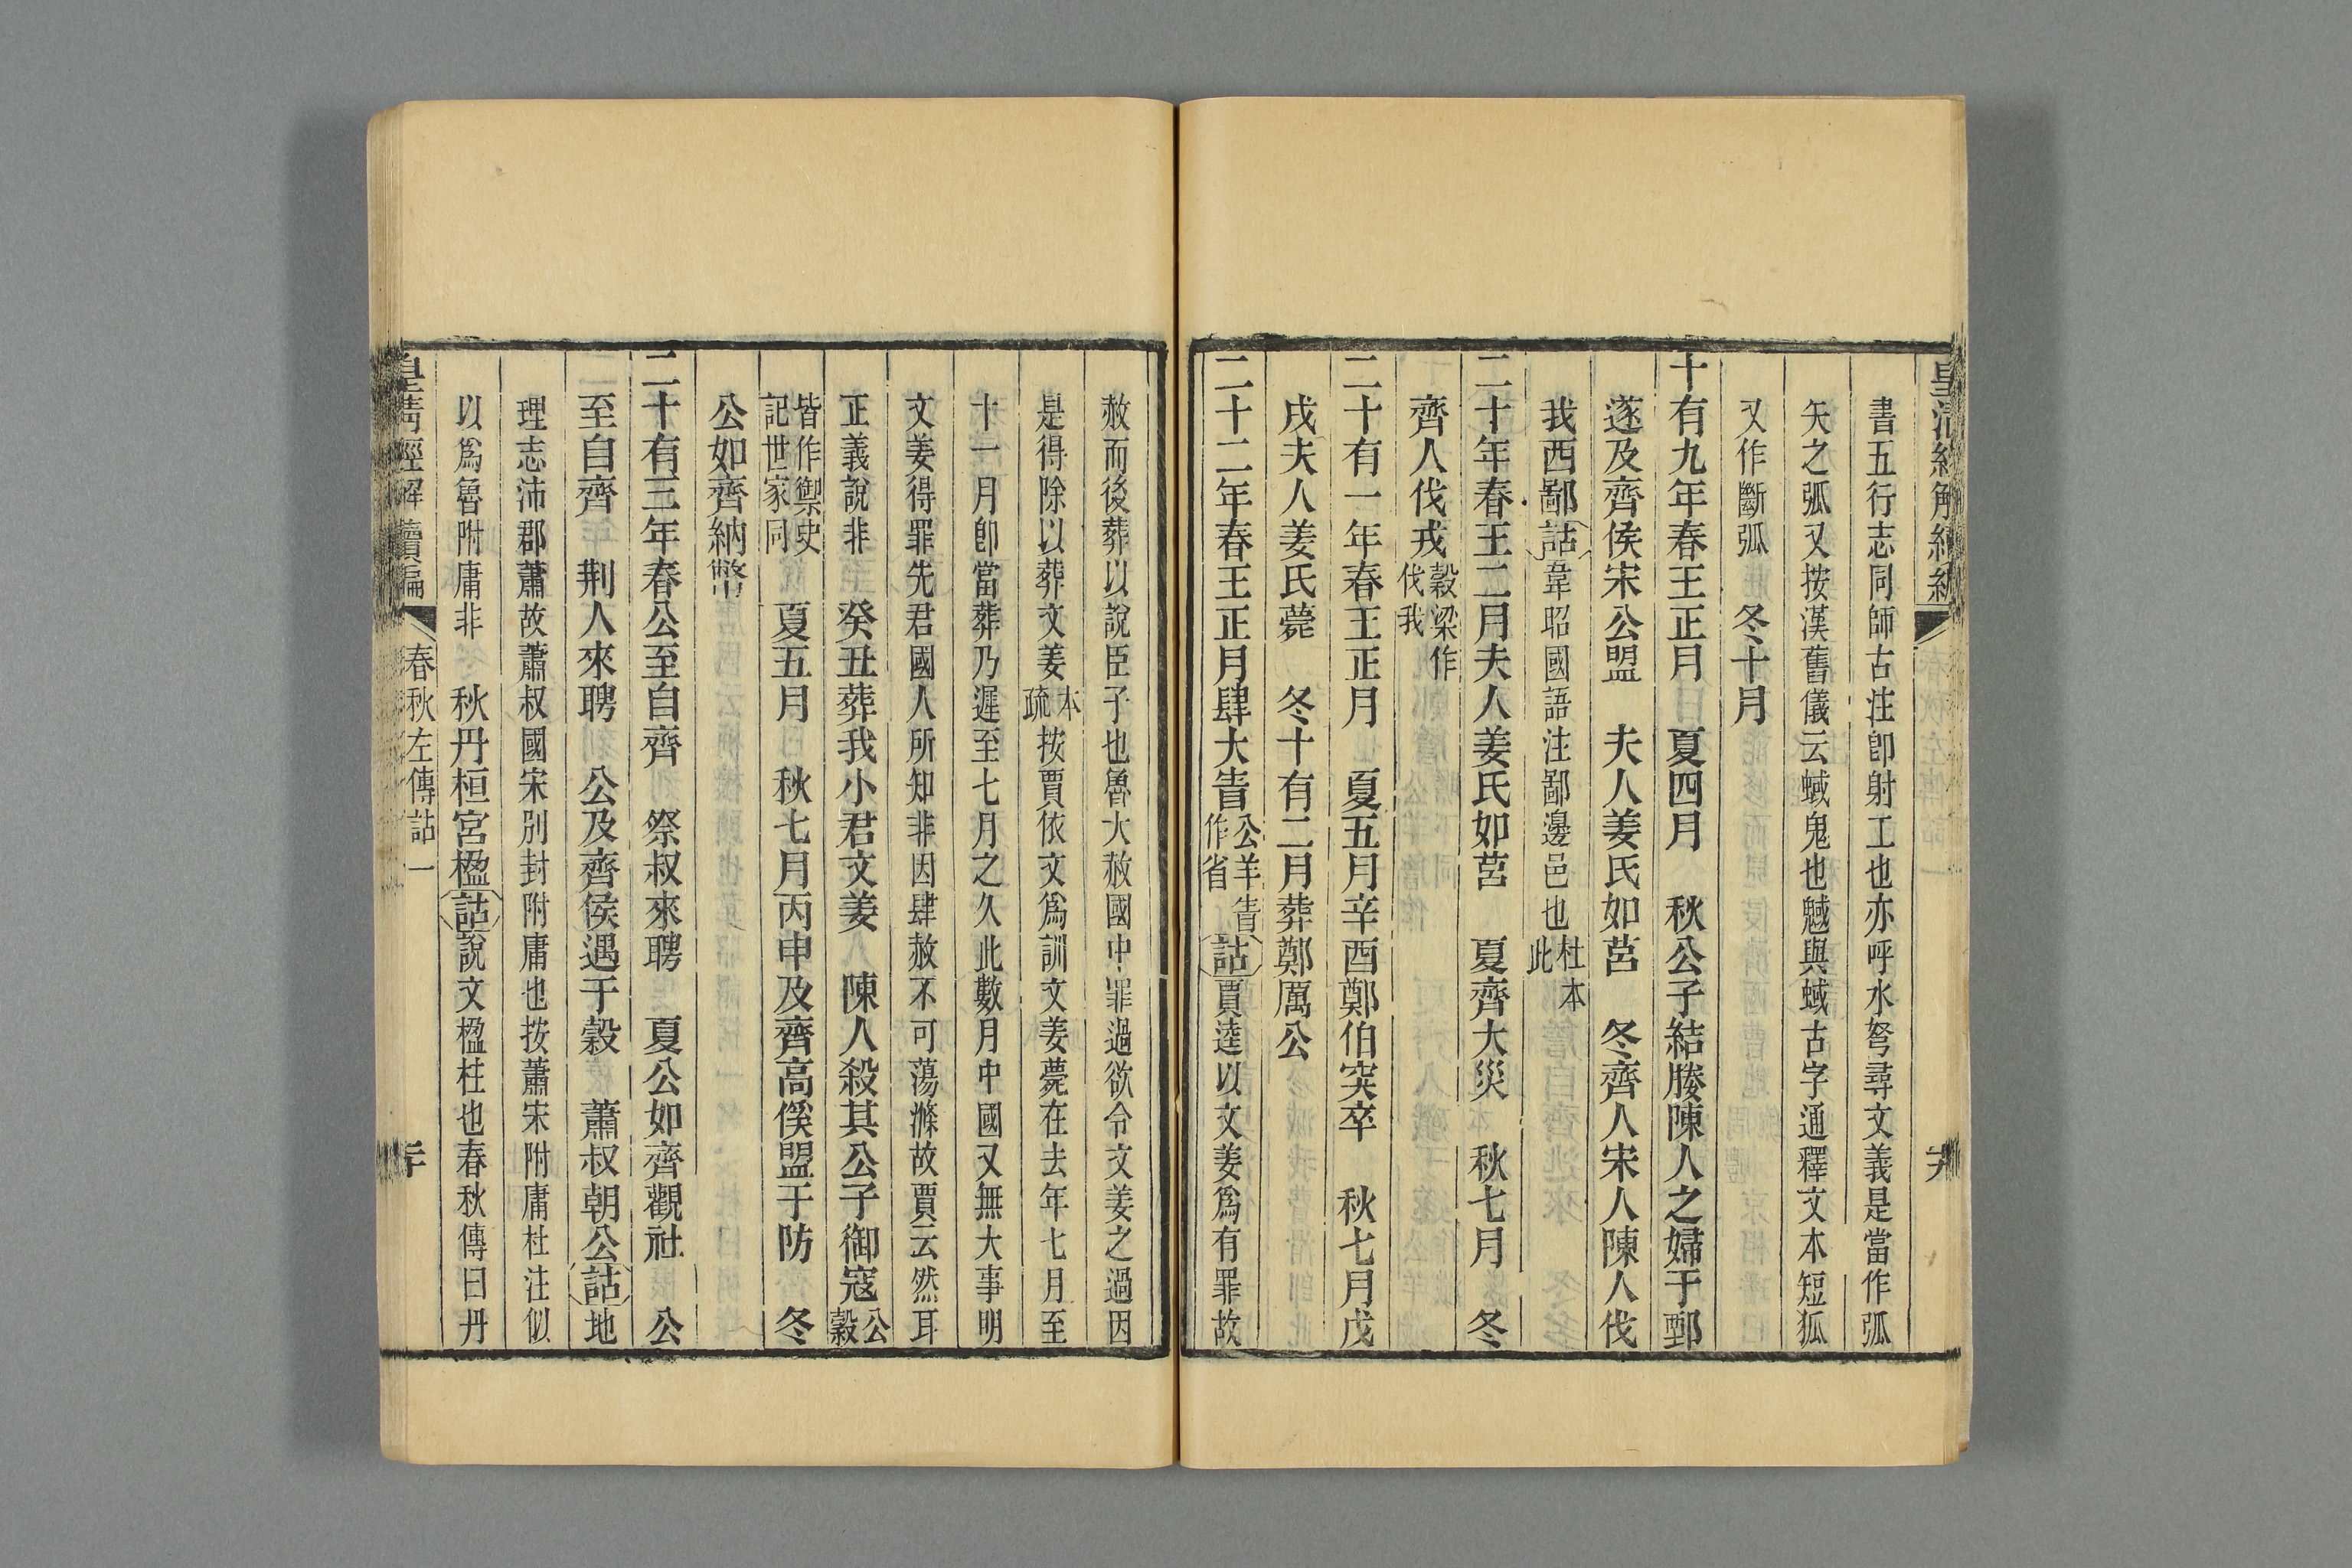 皇清經解續編
書五行志同師古注卽射工也亦呼水弩尋文義是當作弧
矢之弧又按漢舊儀云蜮鬼也魊與蜮古字通釋文本短狐
又作斷弧　冬十月
十有九年春王正月　夏四月　秋公子結媵陳人之婦于鄄
遂及齊侯宋公盟　夫人姜氏如莒　冬齊人宋人陳人伐
我西鄙詁韋昭國語注鄙邊邑也杜本此
二十年春王二月夫人姜氏如莒　夏齊大災　秋七月　冬
齊人伐戎穀梁作伐我
二十有一年春王正月　夏五月辛酉鄭伯突卒　秋七月戊
戌夫人姜氏薨　冬十有二月葬鄭厲公
二十二年春王正月肆大眚公羊眚作省詁賈逵以文姜爲有罪故
赦而後葬以說臣子也魯大赦國中罪過欲令文姜之過因
是得除以葬文姜本疏按賈依文爲訓文姜薨在去年七月至
十一月卽當葬乃遲至七月之久此數月中國又無大事明
文姜得罪先君國人所知非因肆赦不可蕩滌故賈云然耳
正義說非　癸丑葬我小君文姜　陳人殺其公子御寇公穀
皆作禦史記世家同　夏五月　秋七月丙申及齊高傒盟于防　冬
公如齊納幣
二十有三年春公至自齊　祭叔來聘　夏公如齊觀社　公
至自齊　荆人來聘　公及齊侯遇于穀　蕭叔朝公詁地
理志沛郡蕭故蕭叔國宋別封附庸也按蕭宋附庸杜注似
以爲魯附庸非　秋丹桓宮楹詁說文楹柱也春秋傳曰丹
皇清經解續編　春秋左傳詁一